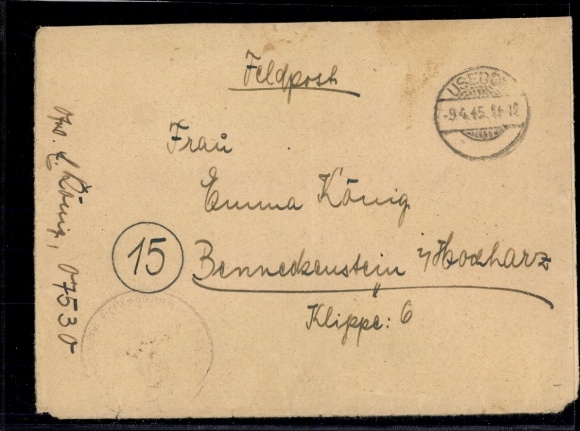 Feldpost
USEDOM
-9.4.45.11-12
Frau
Emma König
15
Benneckenstein i/Hochharz
Klippe: 6
L. König, 07530